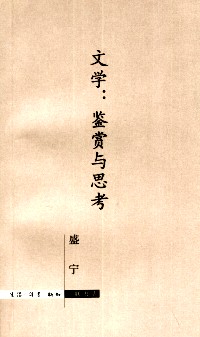 文学：鉴赏与思考
盛宁